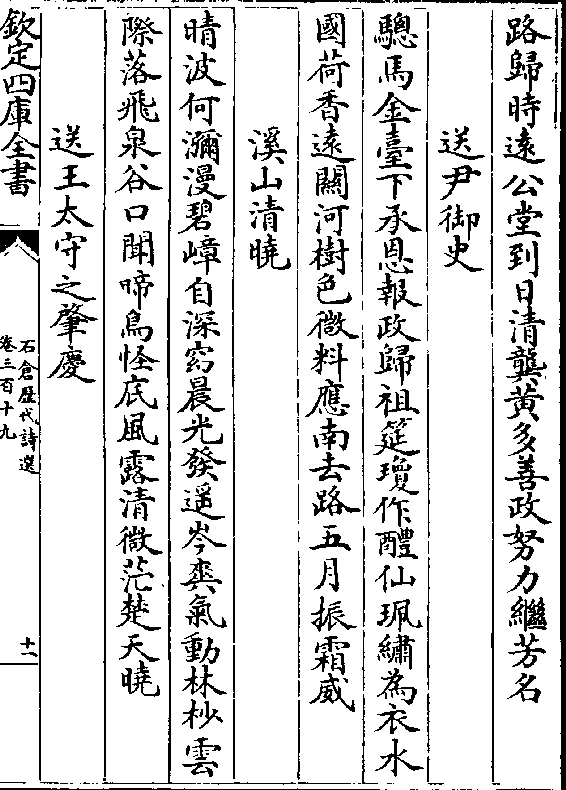 路歸時遠公堂到日清龔黄多善政努力繼芳名
送尹御史
驄馬金臺下承恩報政歸祖筵瓊作醴仙珮繡為衣水
國荷香遠關河樹色微料應南去路五月振霜威
溪山清曉
晴波何瀰漫碧嶂自深窈晨光發遥岑爽氣動林杪雲
際落飛泉谷口聞啼鳥怪底風露清微茫楚天曉
送王太守之肇慶
欽定四庫全書
石倉歴代詩選
卷三百十九
十一